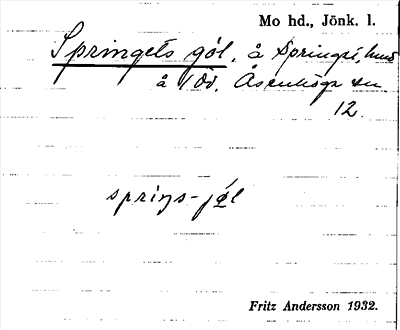 Mo hd., Jönk. l.
Springets göl, å Springet, hmd
å 1 Od. Åsenhöga sn
12.
spriŋs-jøl
Fritz Andersson 1932.